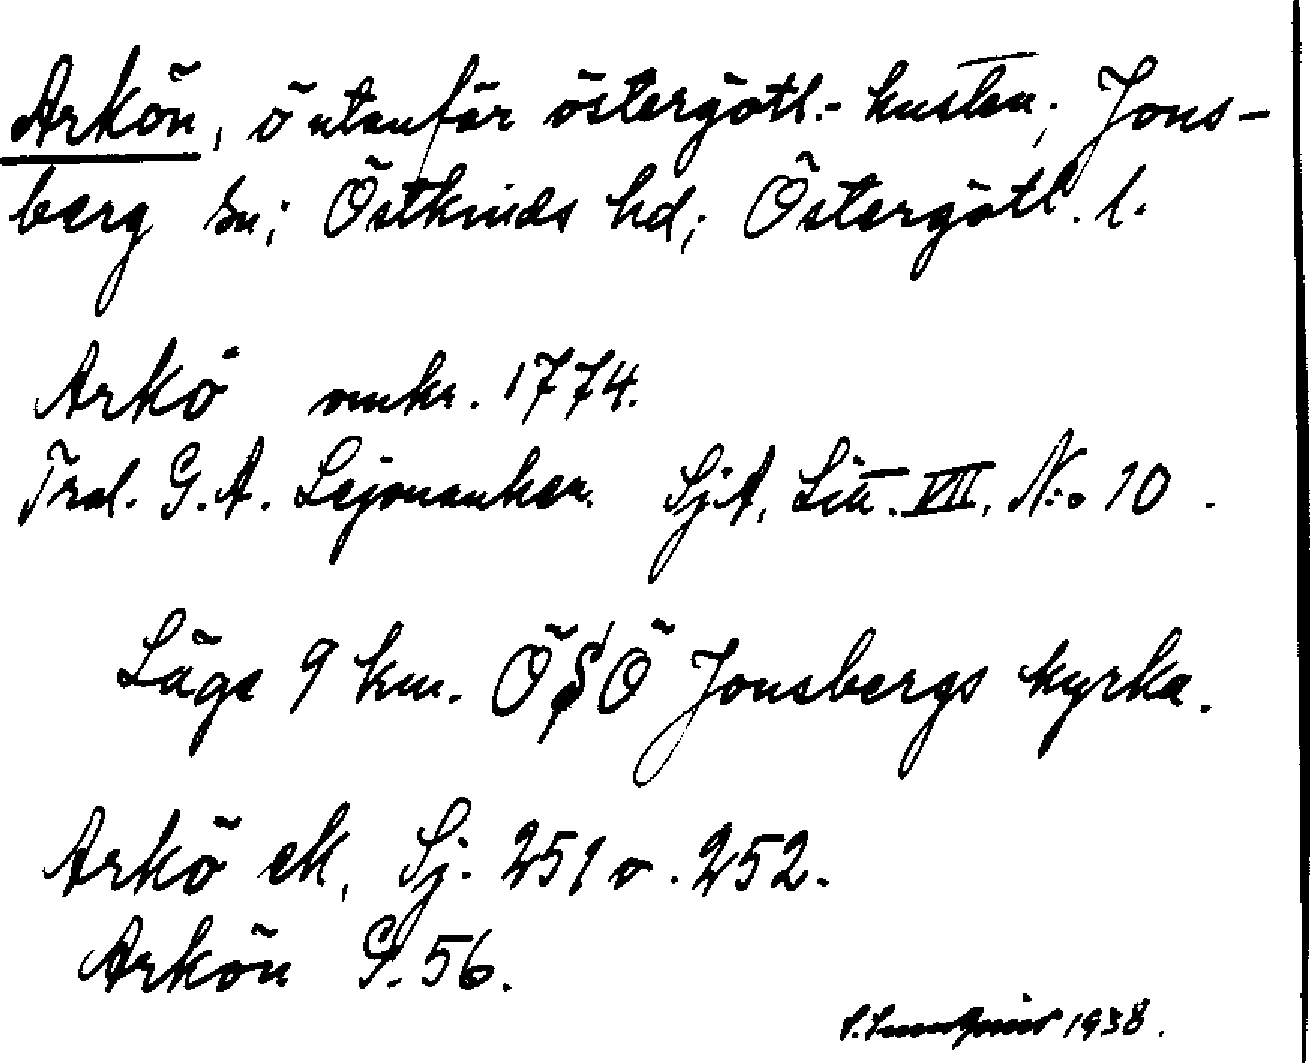 Arkön, ö utanför östergötl.- kusten; Jons-
berg sn; Östkinds hd; Östergötl. l.
Arkö omkr. 1774.
Trol. G. A. Lejonanker. Sj.A. Litt. VII. N:o 10.
Läge 9 km. ÖSÖ Jonsbergs kyrka.
Arkö ek, Sj. 251 o. 252.
Arkön G. 56.
1938.